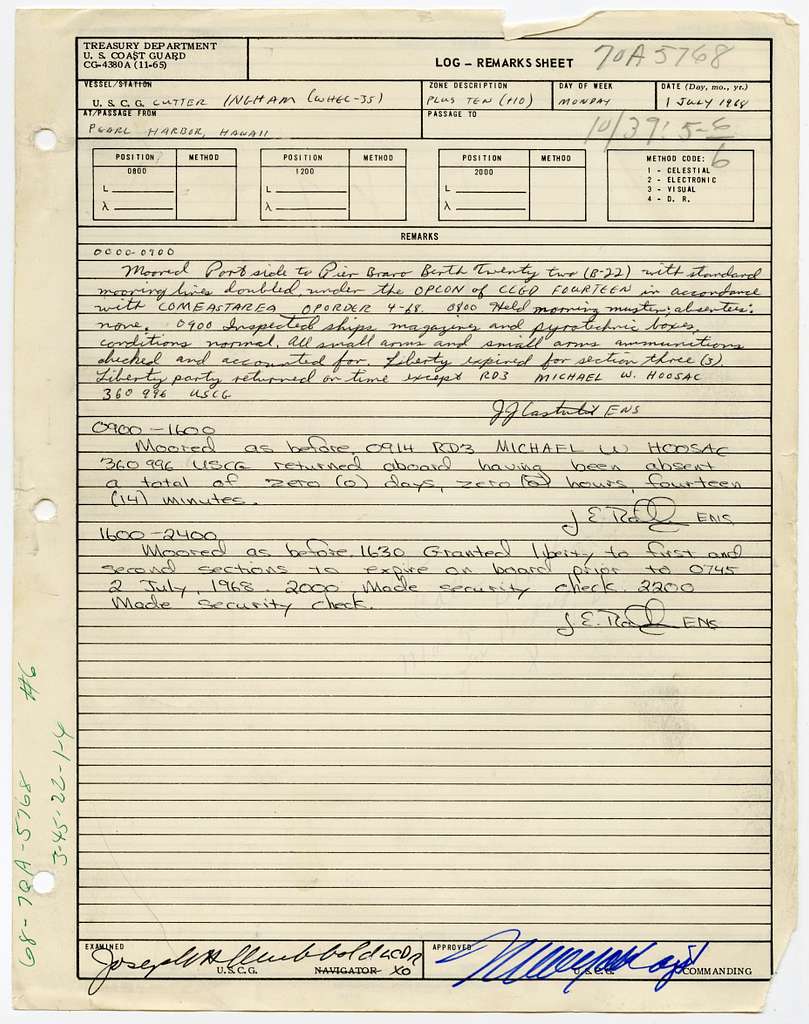 TREASURY DEPARTMENT
U. S. COAST GUARD
CG-4380A (11-65)
LOG – REMARKS SHEET
70A5768
VESSEL/STATION
U. S. C. G. CUTTER INGHAM (WHEC-35)
ZONE DESCRIPTION
PLUS TEN (+10)
DAY OF WEEK
MONDAY
DATE (Day, mo., yr.)
1 JULY 1968
AT/PASSAGE FROM
PEARL HARBOR, HAWAII
PASSAGE TO
POSITION METHOD
0800
L
λ
POSITION METHOD
1200
L
λ
POSITION METHOD
2000
L
λ
METHOD CODE:
1 - CELESTIAL
2 - ELECTRONIC
3 - VISUAL
4 - D. R.
6
REMARKS
0000-0900
Moored Port side to Pier Bravo Berth Twenty two (B-22) with standard
mooring lines doubled, under the OPCON of CCGD FOURTEEN in accordance
with COMEASTAREA OPORDER 4-68 0800 Held morning muster: absentees:
none. 0900 Inspected ships magazines and pyrotechnic boxes,
conditions normal. All small arms and small arms ammunitions
checked and accounted for. Liberty expired for section three (3).
Liberty party returned on time except RD3 MICHAEL W. HOOSAC
360 996 USCG
ENS
0900-1600
Moored as before, 0914 RD3 MICHAEL W HOOSAC
360 996 USCG returned aboard having been absent
a total of zero (0) days, zero (0) hours, fourteen
(14) minutes.
J. E. ENS
1600-2400
Moored as before. 1630 Granted liberty to first and
second sections to expire on board prior to 0745
2 July, 1968. 2000 Made security check. 2200
Made security check.
J. E. ENS
68-70A-5768 #6
3-45-22-1-4
EXAMINED
Joseph H LCDR
U.S.C.G. NAVIGATOR XO
APPROVED
U.S.C.G. COMMANDING